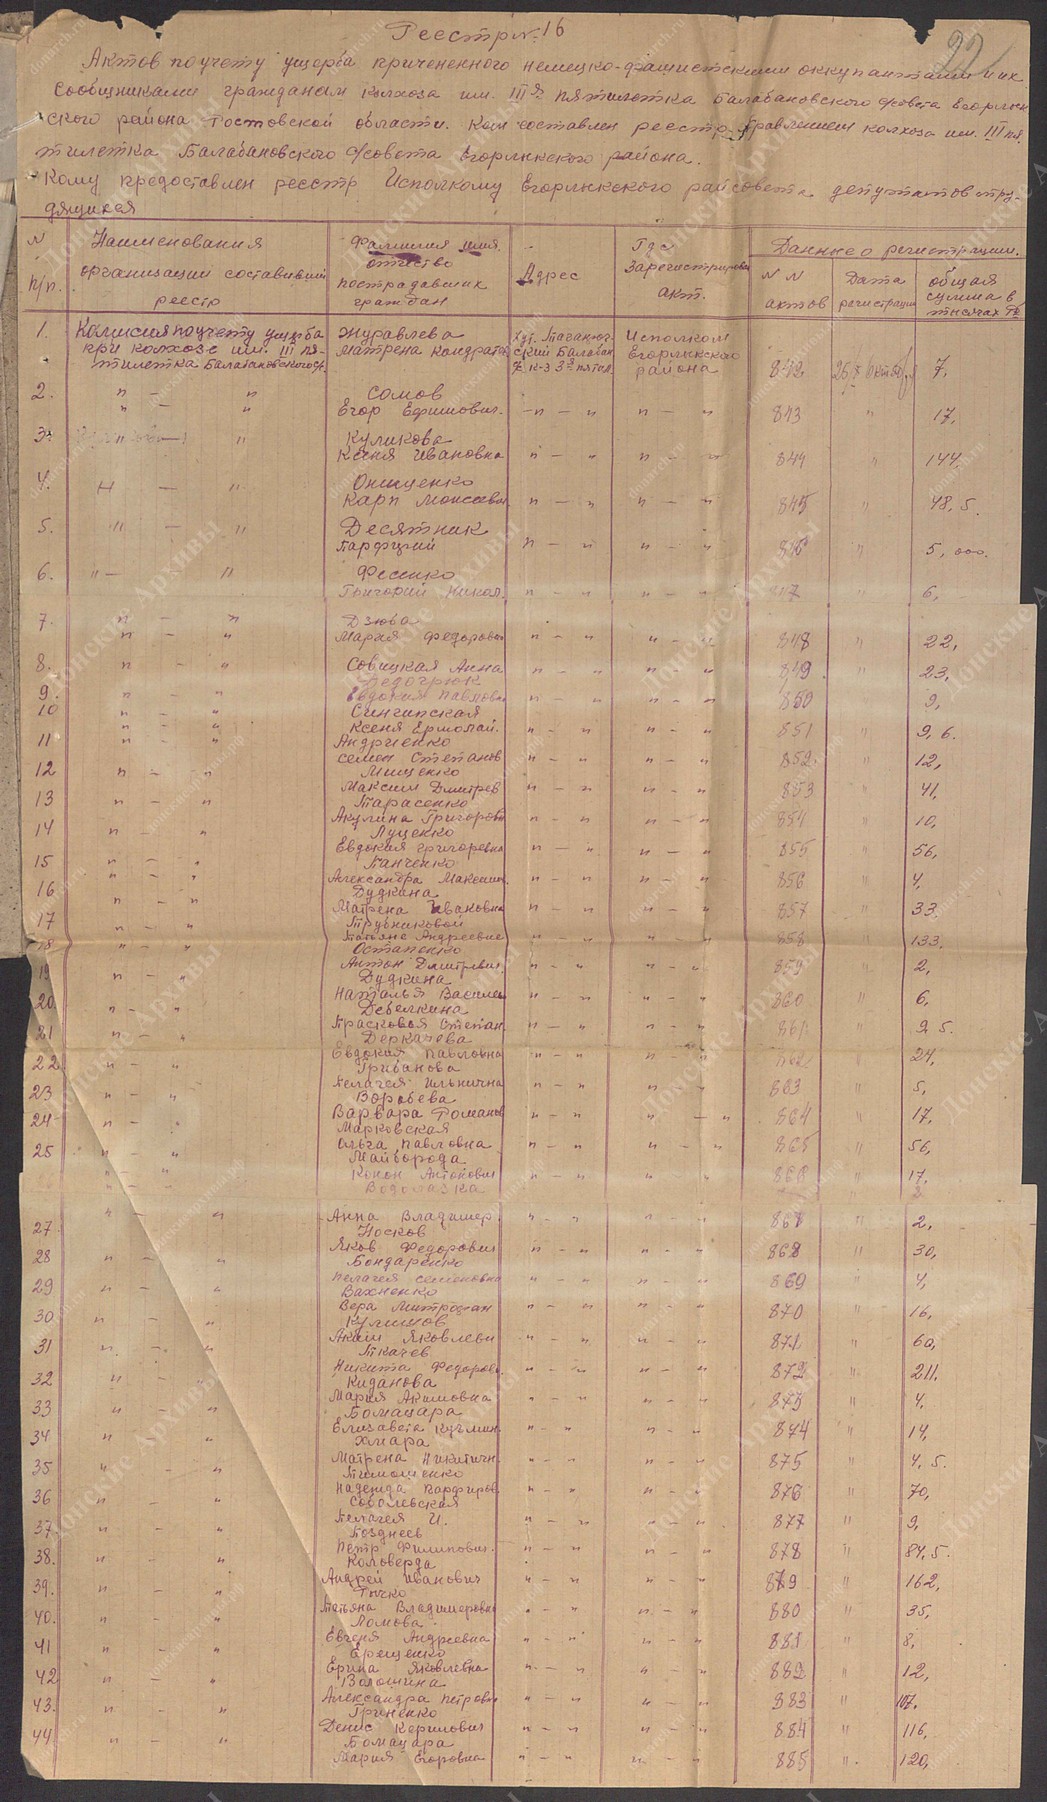 Реестр №16
22
Актов по учету ущерба приченен­ного немецко-фашистскими оккупантами и их
сообщниками гражданам колхоза им. III й пятилетка Балабановского с/совета Егорлык
ского района Ростовской области. Кем составлен реестр Правлением колхоза им. III пя
тилетка Балабановского с/совета Егорлыкского района.
Кому предоставлен реестр Исполкому Егорлыкского райсовета депутатов тру-
дящихся
N п/п.
Наименования организации составивший реестр
Фамилия имя отчество пострадавших граждан
Адрес
Где зарегистрирован акт.
Данные о регистрации.
N N актов
Дата регистрации
общая сумма в тысячах
1. Комиссия по учету ущерба Журавлева Хут. Исполком
при колхозе им. III пя- Матрена Кондрат ский Балабан Егорлыкского
тилетка Балабановского с/с. района 842 7,
2. " — " Сомов
" — " Егор Ефимович. " — " " — " 843 " 17,
3. " — " Куликова
Ксеня Ивановна " — " " — " 844 " 144,
4. " — " Онищенко
Карп Моисеевич " — " " — " 845 " 48,5.
5. " — " Десятник
Парфирий " — " " — " 846 " 5,000.
6. " — " Фесенко
Григорий Никол. " — " " — " 847 " 6,
7. " — " Дзюва
" — " Мария Федоровн " — " " — " 848 " 22,
8. " — " Совицкая Анна " — " " — " 849 " 23,
9. " — " Евдокия Павловн " — " " — " 850 9,
10 " — " Сингипская
" — " Ксеня Ермолай. " — " " — " 851 " 9,6.
11 " — " Андриенко
Семен Степанов " — " " — " 852 " 12,
12 " — " Мищенко
Максим Дмитрев " — " " — " 853 " 41,
13 " — " Тарасенко
Акулина Григоровн " — " " — " 854 " 10,
14 " — " Луценко
Евдокия Григоревна " — " " — " 855 " 56,
15 " — " Панченко
" — " Александра Максим. " — " " — " 856 " 4,
16 Дудкина
" — " Матрена Ивановна " — " " — " 857 " 33.
17 " — " Трубникова
18 " — " Татьяна Андреевна " — " " — " 858 " 133.
Остапенко
Антон Дмитревич. " — " " — " 859 " 2,
19 " — " Дудкина
Наталья Василев " — " " — " 860 " 6,
20 " — " Дебелкина
Прасковья Степан. " — " " — " 861 " 25.
21 " — " Деркачева
Евдокия Павловна " — " " — " 862 " 24,
22 " — " Грибанова
Пелагея Ильнична " — " " — " 863 " 5,
23 " — " Воробева
Варвара Романов " — " " — " 864 " 17,
24 " — " Марковская
Ольга Павловна " — " " — " 865 " 56,
25 " — " Майборода
" — " Конон Антонович " — " " — " 866 " 17,
Водолазка
" — " Анна Владимер. " — " " — " 867 " 2,
27 Носков
Яков Федорович " — " " — " 868 " 30,
28 " — " Бондаренко
Пелагея Семеновна " — " " — " 869 " 4,
29 " — " Вахненко
Вера Митрофан " — " " — " 870 " 16,
30 " — " Кулишов
Аким Яковлевич " — " " — " 871 " 60,
31 " — " Ткачев
Никита Федоров. " — " " — " 872 " 211.
32 " — " Киданова
Мария Акимовна " — " " — " 873 " 4.
33 " — " Бомацара
Елизавета Кузмин. " — " " — " 874 " 14,
34 " — " Хмара
Матрена Никитичн. " — " " — " 875 " 4,5.
35 " — " Тимошенко
Надежда Парфиров. " — " " — " 876 " 70,
36 " — " Соболевская
Пелагея И. " — " " — " 877 " 9,
37 " — " Позднеев
Петр Филипович. " — " " — " 878 " 84,5.
38. " — " Коловерда
Андрей Иванович " — " " — " 879 " 162,
39. " — " Тычко
Татьяна Владимеровна " — " " — " 880 " 35,
40. " — " Ломова
Евгеня Андреевна " — " " — " 881 " 8,
41 " — " Ерещенко
Ерина Яковлевна " — " " — " 882 " 12,
42 " — " Волошина
Александра Петровн " — " " — " 883 " 107.
43. " — " Гриненко
Денис Керилович " — " " — " 884 " 116,
44 " — " Бомацара
Мария Егоровна " — " " — " 885 " 120,